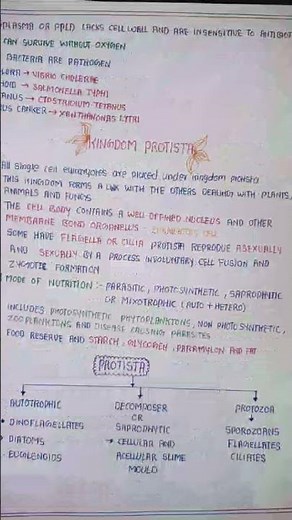 PLASMA OR PPLO LACKS CELL WALL AND ARE INSENSITIVE TO ANTIBIOT
CAN SURVIVE WITHOUT OXYGEN
BACTERIA ARE PATHOGEN
LERA → VIBRIO CHOLERAE
HOID → SALMONELLA TYPHI
TANUS → CLOSTRIDIUM TETANUS
US CANKER → XANTHANONAS CYTRI
KINGDOM PROTISTA
All single cell eukaryotes are placed under kingdom protista
THIS KINGDOM FORMS A LINK WITH THE OTHERS DEALING WITH PLANTS,
ANAMALS AND FUNGUS
THE CELL BODY CONTAINS A WELL DEFINED NUCLEUS AND OTHER
MEMBRANE BOND ORGANELLS
SOME HAVE FLAGELLA OR CILIA PROTISTA REPRODUE ASEXUALLY
AND SEXUALLY BY A PROCESS INVOLUNTARY CELL FUSION AND
ZYGOTE FORMATION
MODE OF NUTRITION :- PARASITIC, PHOTOSYNTHETIC, SAPROPHYTIC
OR MIXOTROPHIC (AUTO + HETERO)
INCLUDES PHOTOSYNTHETIC PHYTOPLANKTONS, NON PHOTO SYNTHETIC,
ZOOPLANKTONS AND DISEASE CAUSING PARASITES
FOOD RESERVE AND STARCH, GLYCOGEN, PARAMYLON AND FAT
PROTISTA
AUTOTROPHIC DECOMPOSER PROTOZOA
OR
DINOFLAGELLATES SAPROPHYTIC SPOROZOANS
DIATOMS → CELLULAR AND FLAGELLATES
EUGLENOIDS ACELLULAR SLIME CILIATES
MOULD